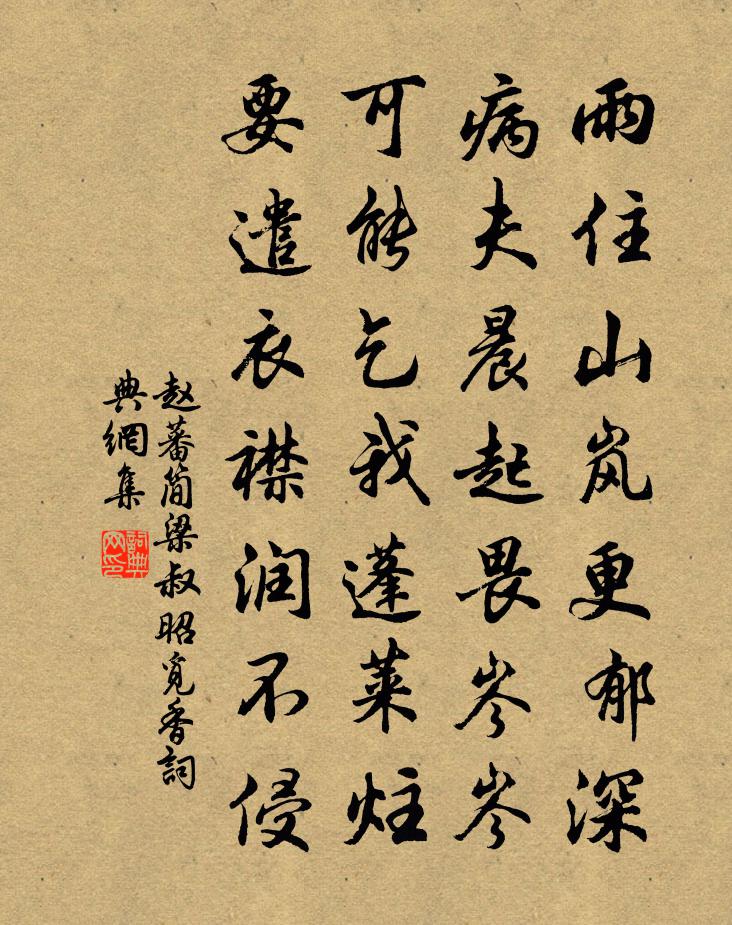 雨住山岚更郁深
病夫晨起畏岑岑
可能乞我蓬莱炷
要遣衣襟润不侵
赵蕃简梁叔昭觅香词
典網集
詞典網印